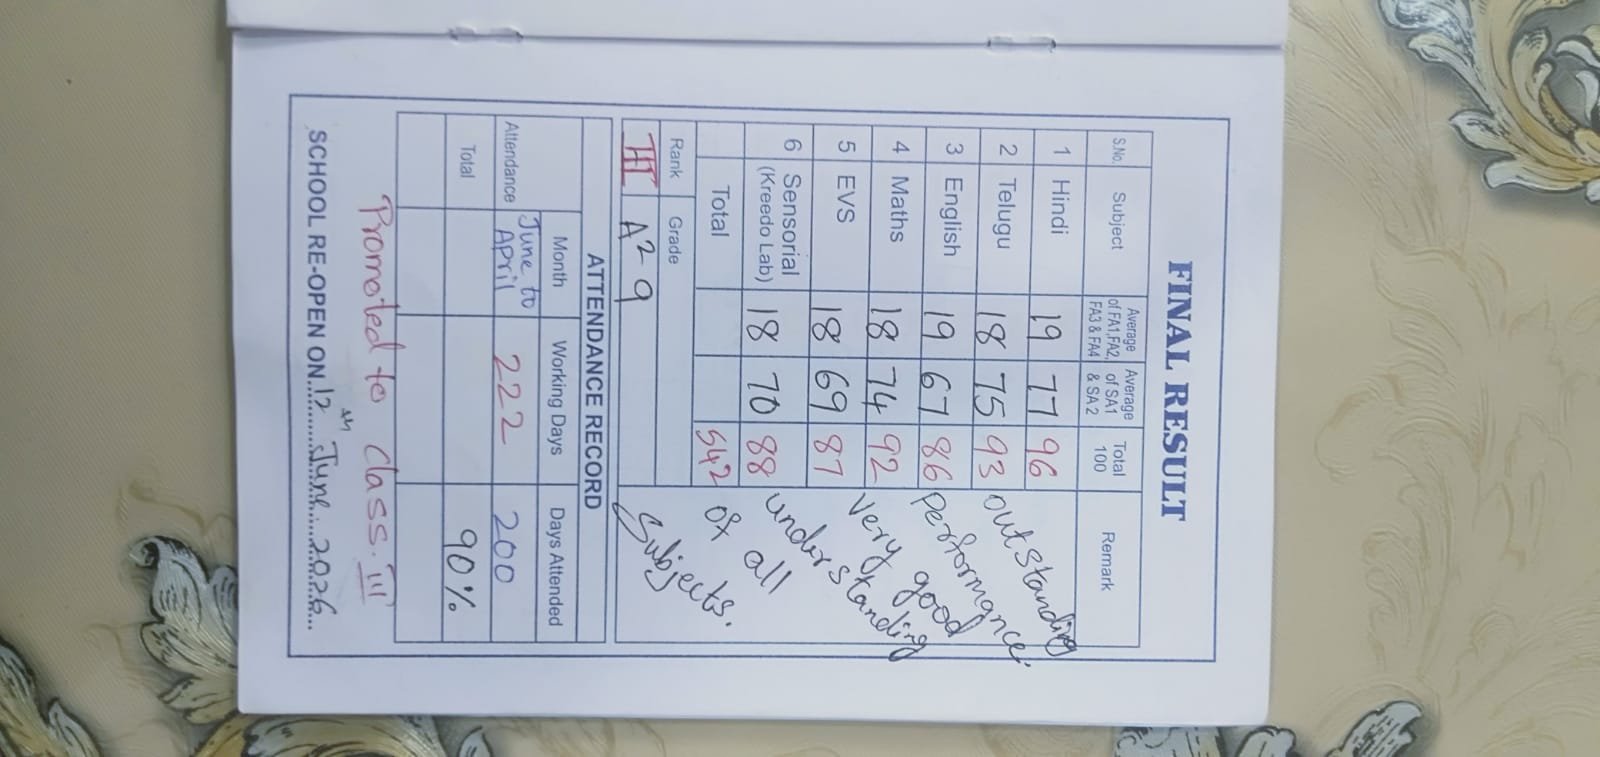 FINAL RESULT
S.No. Subject Average of FA1,FA2, FA3 & FA4 Average of SA1 & SA 2 Total 100 Remark
1 Hindi 19 77 96
2 Telugu 18 75 93
3 English 19 67 86
4 Maths 18 74 92
5 EVS 18 69 87
6 Sensorial (Kreedo Lab) 18 70 88
Total 542
outstanding
performance.
very good
understanding
of all
Subjects.
Rank Grade
III A2 9
ATTENDANCE RECORD
Month Working Days Days Attended
Attendance June to April 222 200
Total 90%
Promoted to class. III
SCHOOL RE-OPEN ON..12th June. 2026...